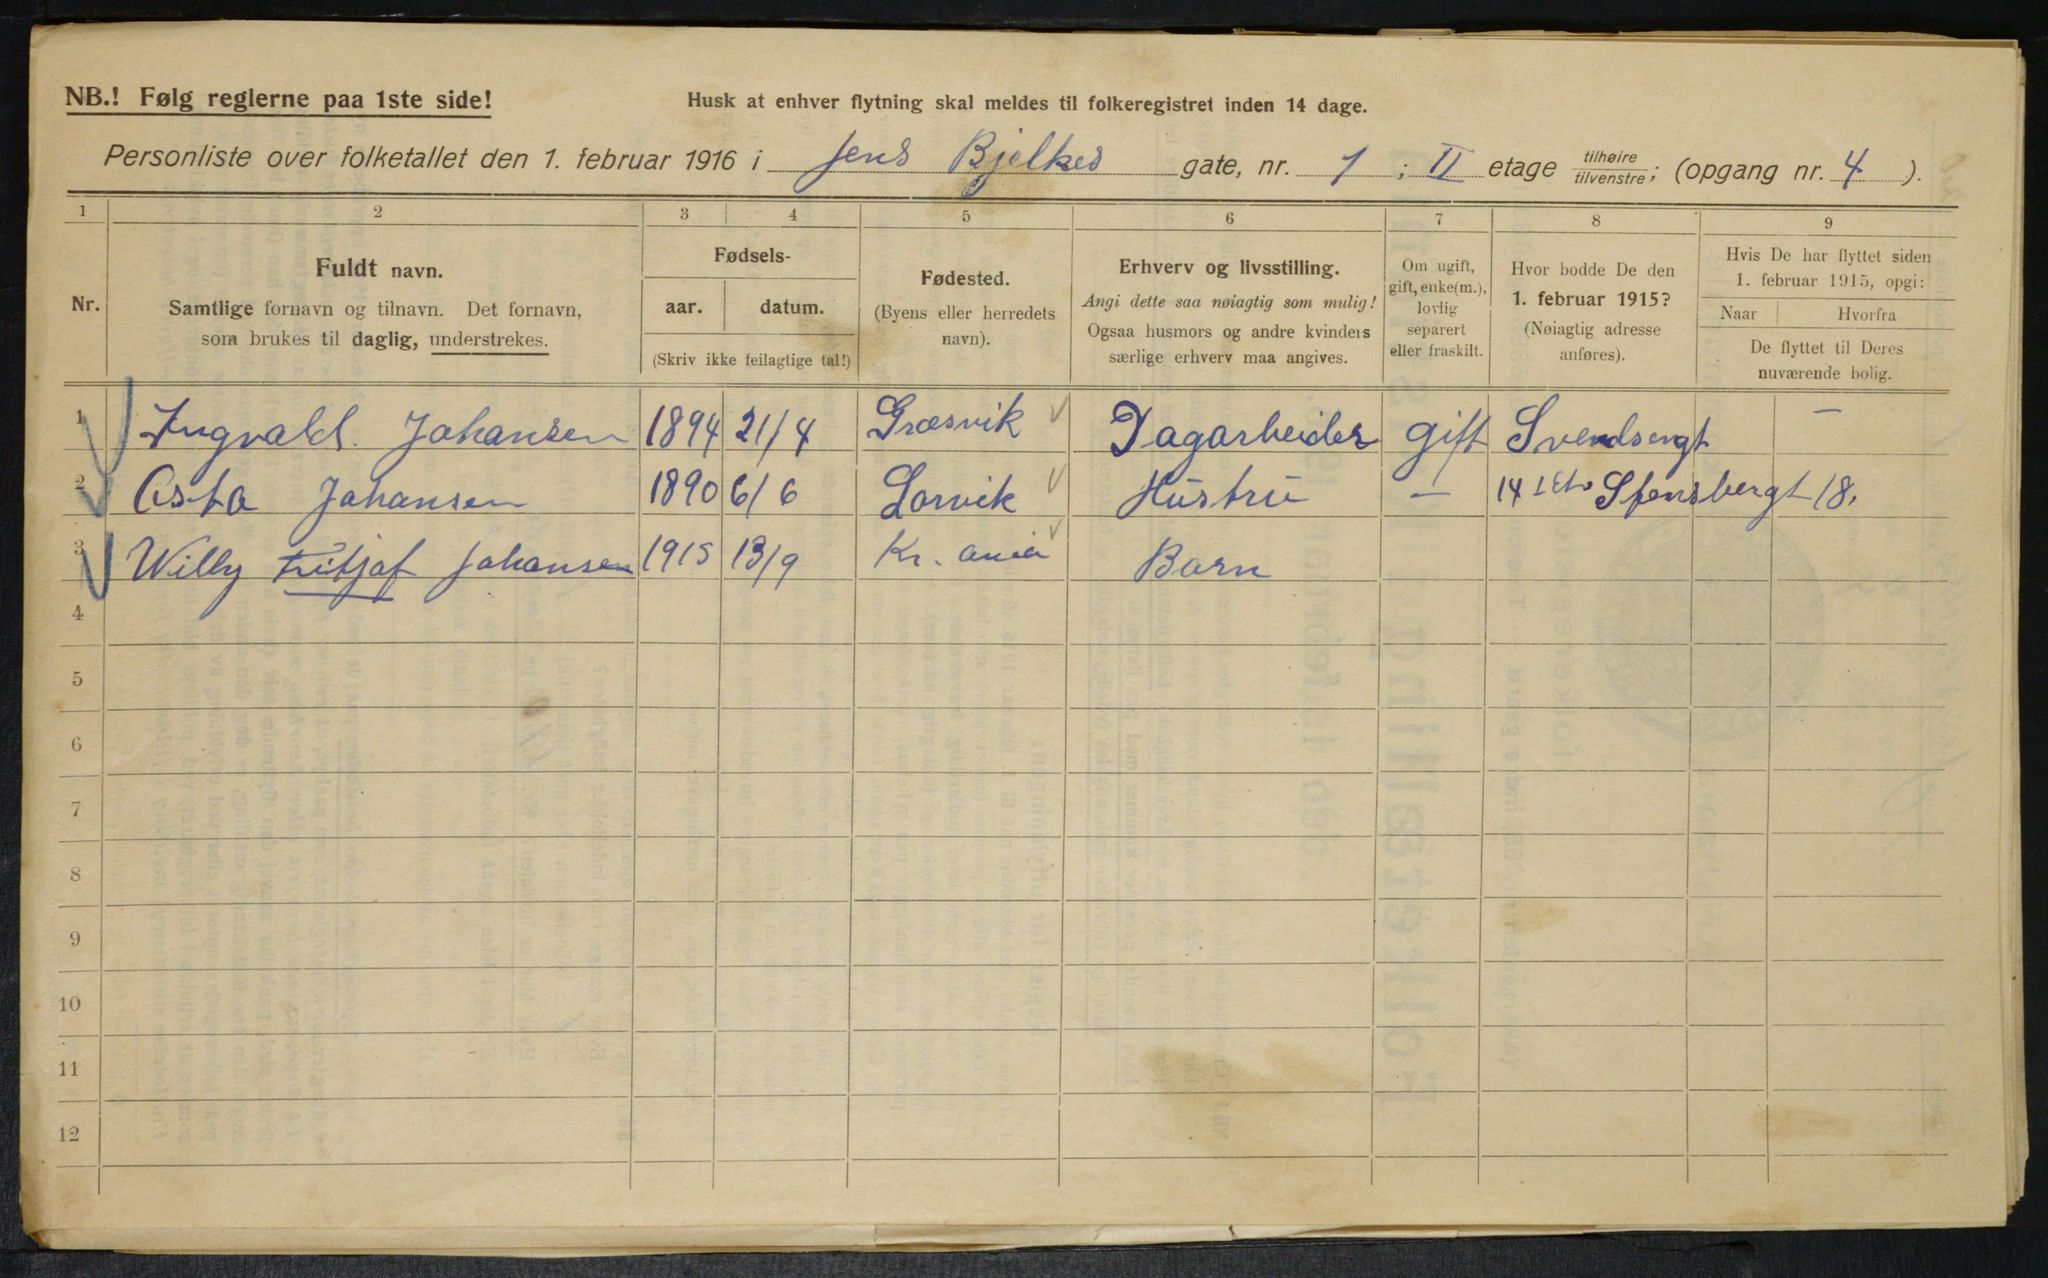 NB.! Følg reglerne paa 1ste side!
Husk at enhver flytning skal meldes til folkeregistret inden 14 dage.
Personliste over folketallet den 1. februar 1916 i Jens Bjelkes gate, nr. 1 ; II etage tilhøire / tilvenstre ; (opgang nr. 4 ).
1 2 3 4 5 6 7 8 9
Nr.
Fuldt navn.
Samtlige fornavn og tilnavn. Det fornavn,
som brukes til daglig, understrekes.
Fødsels-
aar. datum.
(Skriv ikke feilagtige tal!)
Fødested.
(Byens eller herredets
navn).
Erhverv og livsstilling.
Angi dette saa nøiagtig som mulig!
Ogsaa husmors og andre kvinders
særlige erhverv maa angives.
Om ugift,
gift, enke(m.),
lovlig
separert
eller fraskilt.
Hvor bodde De den
1. februar 1915?
(Nøiagtig adresse
anføres).
Hvis De har flyttet siden
1. februar 1915, opgi:
Naar Hvorfra
De flyttet til Deres
nuværende bolig.
1 Ingvald. Johansen 1894 21/4 Græsvik Dagarbeider gift Svendsengt -
2 Asta Johansen 1890 6/6 Larvik Hustru - 14 Stensbergt 18.
3 Willy Fritjof Johansen 1915 13/9 Kr. ania Barn
4
5
6
7
8
9
10
11
12